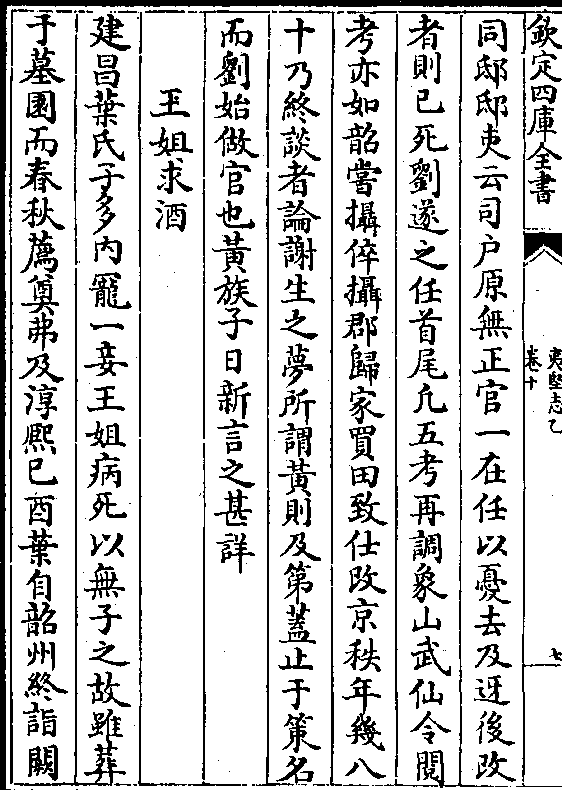 欽定四庫全書
夷堅志乙
卷十
七
同邸邸吏云司户原無正官一在任以憂去及迓後政
者則已死劉遂之任首尾凡五考再調象山武仙令閱
考亦如韶嘗攝倅攝郡歸家買田致仕改京秩年幾八
十乃終談者論謝生之夢所謂黄則及第蓋止于策名
而劉始做官也黃族子日新言之甚詳
王姐求酒
建昌葉氏子多内寵一妾王姐病死以無子之故雖葬
于墓園而春秋薦奠弗及淳熙己酉葉自韶州終詣闕